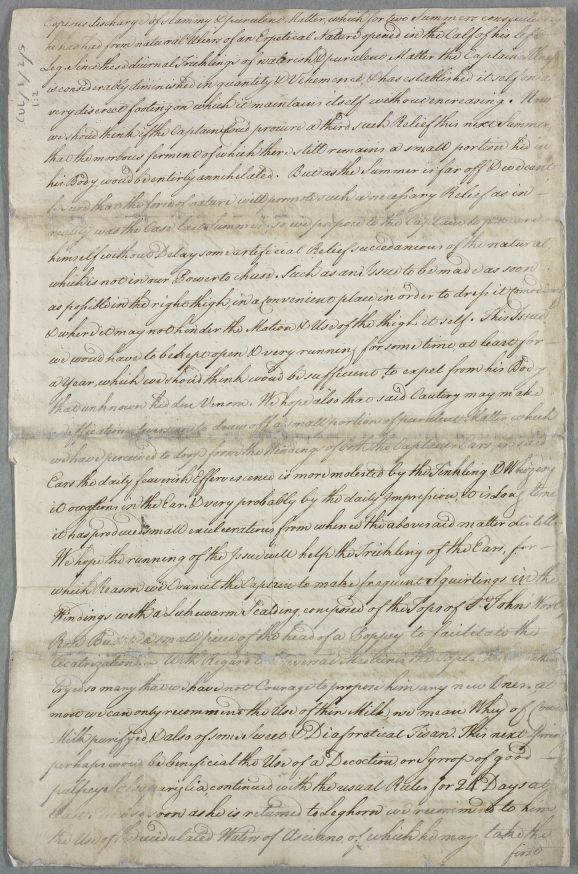 Copious discharge of slammy & purulent Matter, which for two Summers consecutively
he had had from natural Ulcers of an Erpetical Nature opened in the Calf of his left
Leg. Since these diurnal Trichlings of waterish & purulent Matter the Captains Illness
is considerably diminished in quantity & Vehemence, & has established itself on a
very discreet footing on which it maintains itself without encreasing. Now
we shou'd think if the Captain cou'd procure a third such Relief this next Summer
that the morbous ferment of which there still remains a small portion hid in
his Body wou'd be entirly annihilated. But as the Summer is far off & we can't
be sure that the force of nature will permote such a necessary Relief as in
reality was the Case last Summer, so we propose to the Captain to procure
himself without Delay some artificial Relief succedaneous of the natural
which is not in our Power to chuse. Such as an Issue to be made as soon
as possible in the right thigh, in a convenient place in order to dress it
& where it may not hinder the Motion & Use of the thigh it self. This Issue
we wou'd have to be kept open & very running for some time at least for
a Year, which we shou'd think wou'd be sufficient to expel from his Body
that unknown hidden Venom. We hope also that said Cautery may make
a small portion of purulent Matter which
we have perceived to drop from the Windings of both the Captains Ears, in said
Ears the daily feaverish Effervescence is more molested by the Tinkling & Whizzing
it Occasions in the Ear, & very probably by the daily Impression, & so long time
it has produced small exculcerations from whence the aboresaid matter distills
We hope the running of the Issue will help the Trichling of the Ears, for
which Reason we Councel the Captain to make frequent Squirtings in the
Windings with a Lukewarm Teading composed of the Tops of St. Johns Wort
Rose Buds & a small piece of the head of a Poppey to facilitate the
Cicatrization. With Regard to internal Medicines the Captn. has
tryed so many that we have not Courage to propose him any new Ones. at
most we can only recommend the Use of thin Milk, we mean Whey of Cows
Milk purifyed, & also of some sweet & Diaforatical Tisan. This next Spring
perhaps wou'd be beneficial the Use of a Decoction, or Syrrop of good
continued with the usual Rules for 20 Days at
least. Also so soon as he is returned to Leghorn we recommend to him
the Use of the Acidulated Water of Asciano of which he may take the
first
CUL/1/2/5
1:2